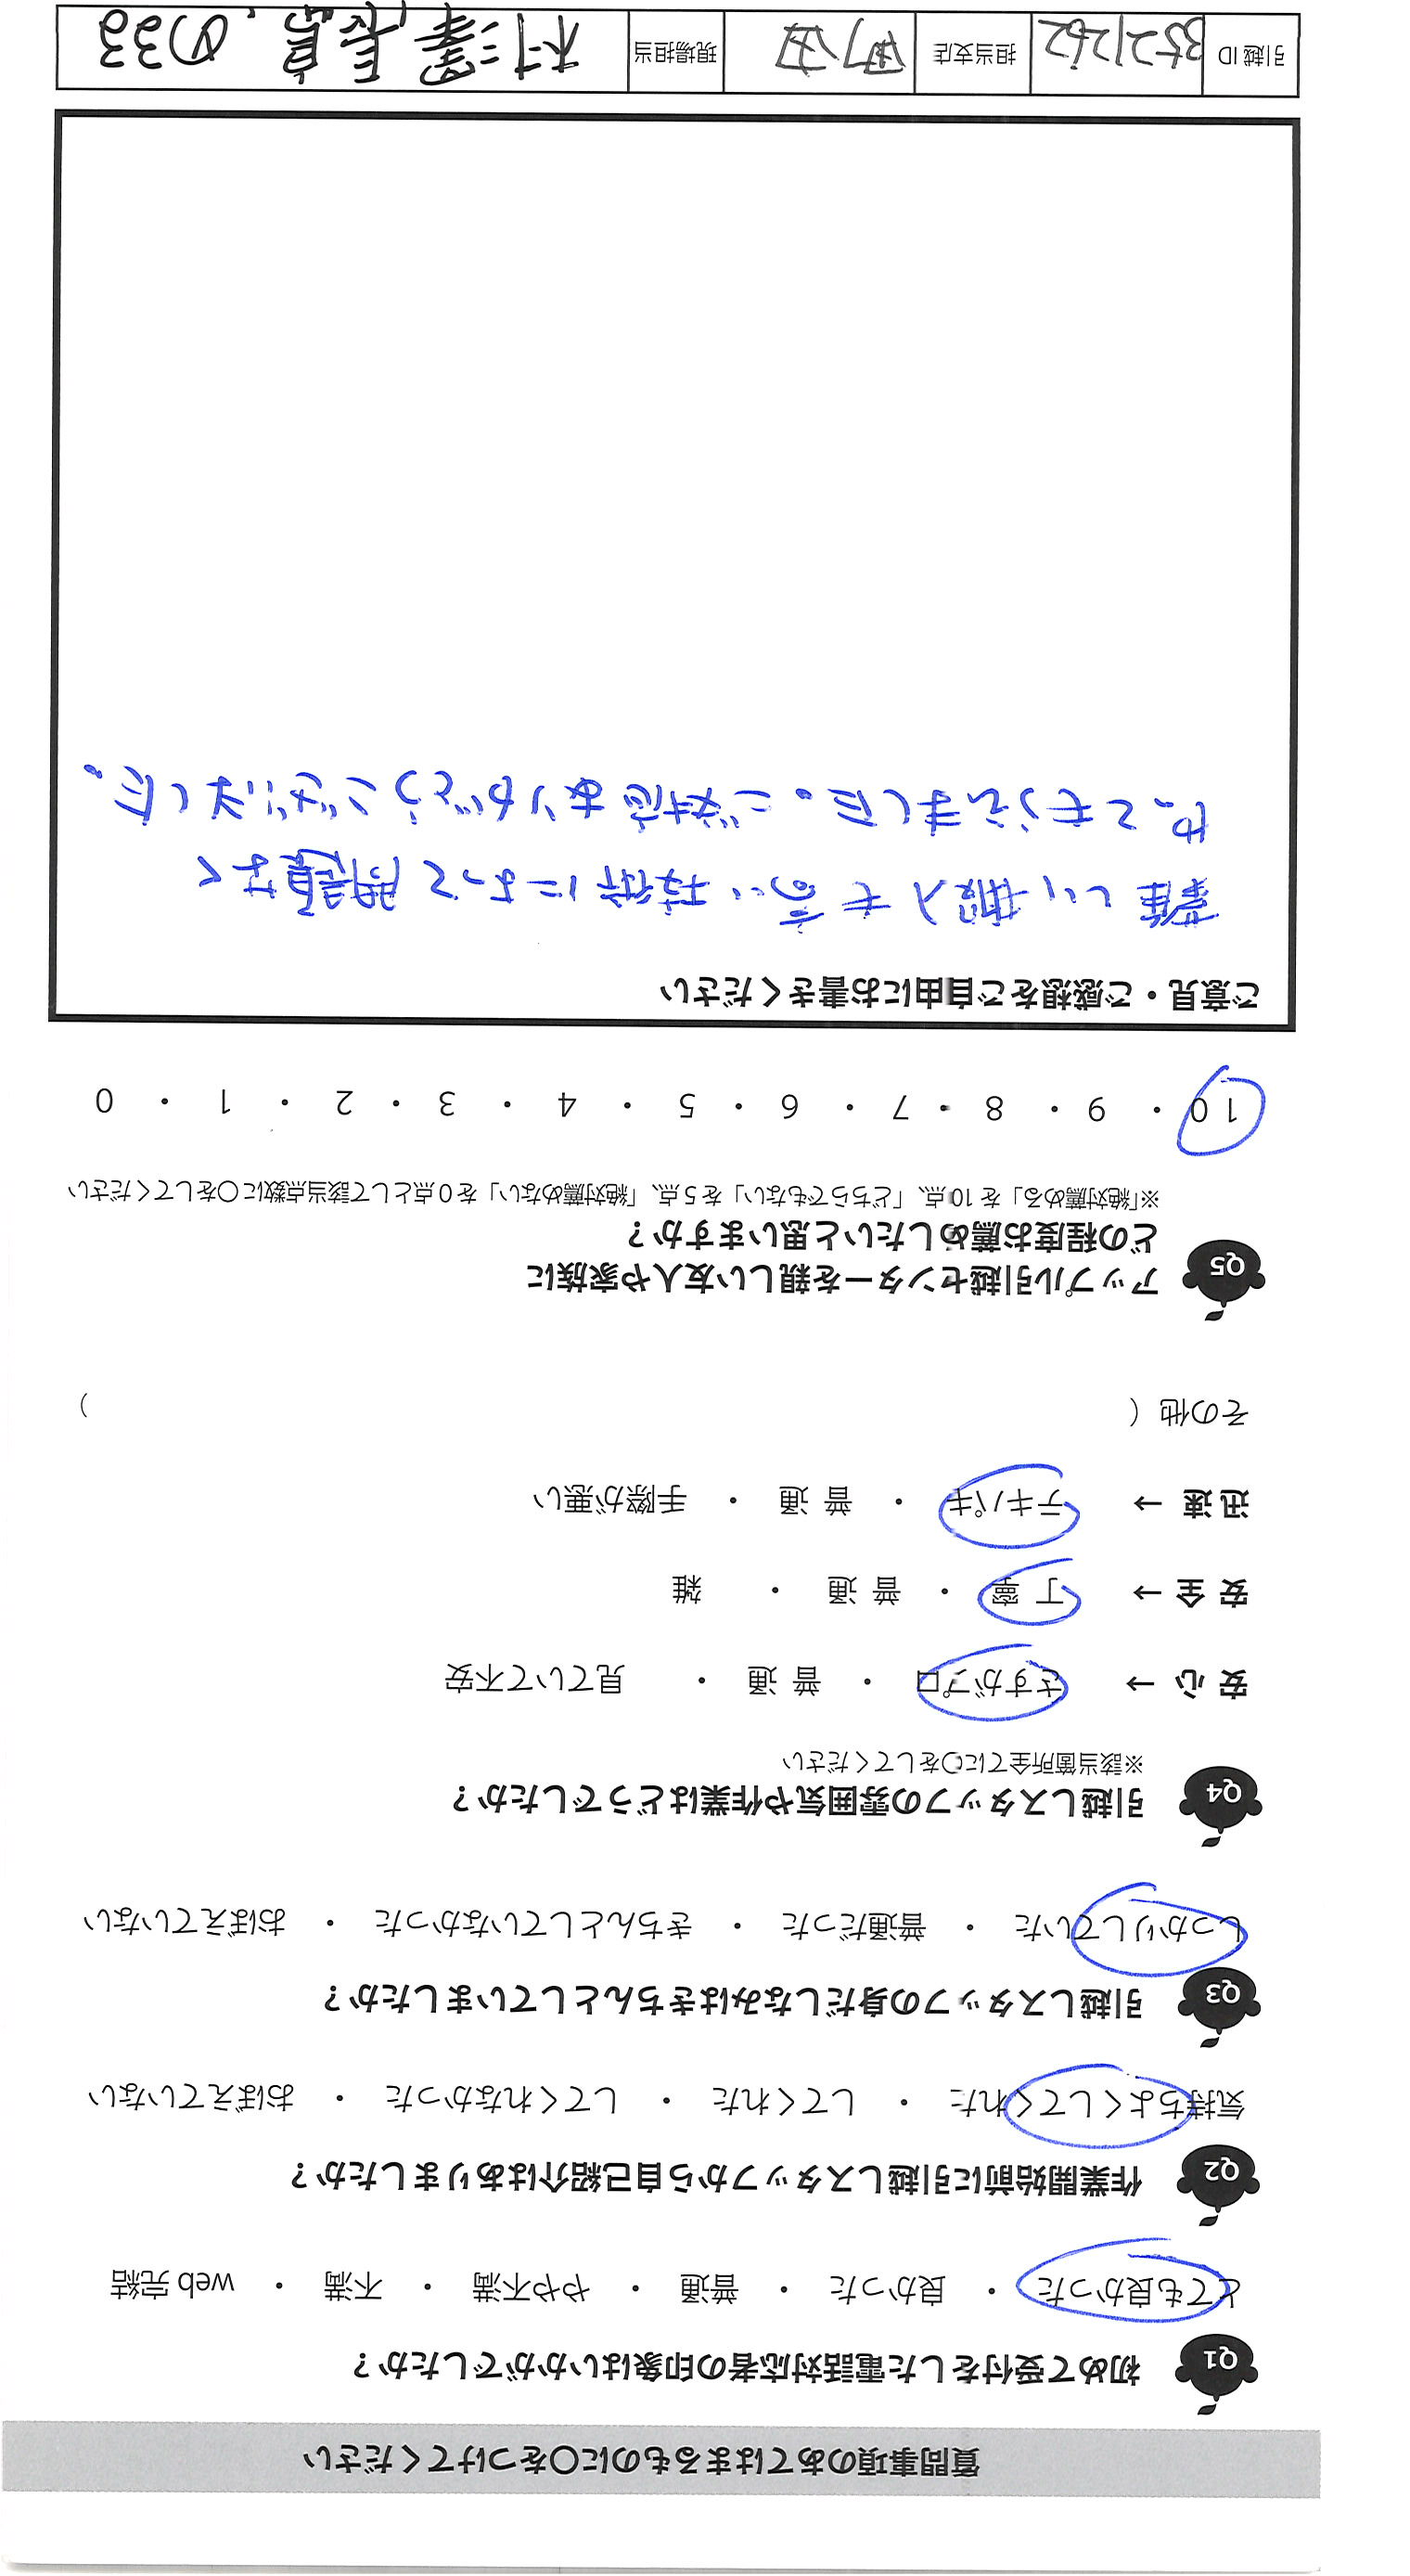 質問事項のあてはまるものに〇をつけてください
Q1 初めて受付をした電話対応者の印象はいかがでしたか？
とても良かった ・ 良かった ・ 普通 ・ やや不満 ・ 不満 ・ web 完結
Q2 作業開始前に引越しスタッフから自己紹介はありましたか？
気持ちよくしてくれた ・ してくれた ・ してくれなかった ・ おぼえていない
Q3 引越しスタッフの身だしなみはきちんとしていましたか？
しっかりしていた ・ 普通だった ・ きちんとしていなかった ・ おぼえていない
Q4 引越しスタッフの雰囲気や作業はどうでしたか？
※該当箇所全てに〇をしてください
安 心 → さすがプロ ・ 普 通 ・ 見ていて不安
安 全 → 丁 寧 ・ 普 通 ・ 雑
迅 速 → テキパキ ・ 普 通 ・ 手際が悪い
その他（ ）
Q5 アップル引越センターを親しい友人や家族に
どの程度お薦めしたいと思いますか？
※「絶対薦める」を 10 点、「どちらでもない」を 5 点、「絶対薦めない」を 0 点として該当点数に〇をしてください
10 ・ 9 ・ 8 ・ 7 ・ 6 ・ 5 ・ 4 ・ 3 ・ 2 ・ 1 ・ 0
ご意見・ご感想をご自由にお書きください
難しい搬入も高い技術によって問題なく
やってもらえました。ご対応ありがとうございました。
引越 ID 3521262 担当支店 現場担当 村澤、長島、